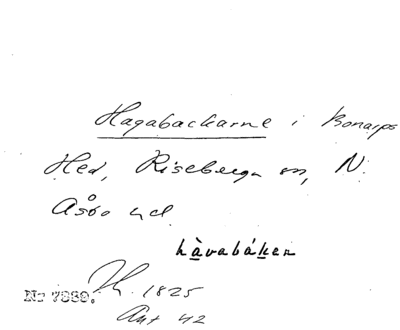 Hagabackarne i Bonarps
Hed, Riseberga sn, N.
Åsbo hd
hàvabáken
No 7889. H. 1825
Ant 42